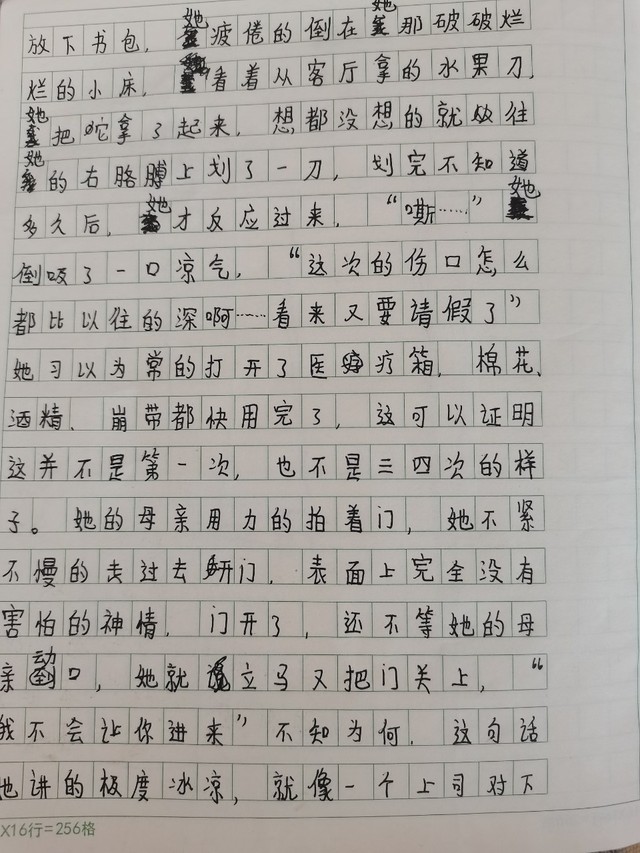 放下书包，她疲倦的倒在她那破破烂
烂的小床，看着从客厅拿的水果刀，
她把它拿了起来，想都没想的就从往
她的右胳膊上划了一刀，划完不知道
多久后，她才反应过来，“嘶……”她
倒吸了一口凉气，“这次的伤口怎么
都比以往的深啊……看来又要请假了”
她习以为常的打开了医疗箱，棉花、
酒精、崩带都快用完了，这可以证明
这并不是第一次，也不是三四次的样
子。她的母亲用力的拍着门，她不紧
不慢的走过去开门，表面上完全没有
害怕的神情，门开了，还不等她的母
亲动口，她就立马又把门关上，“
我不会让你进来”不知为何，这句话
她讲的极度冰凉，就像一个上司对下
X16行=256格